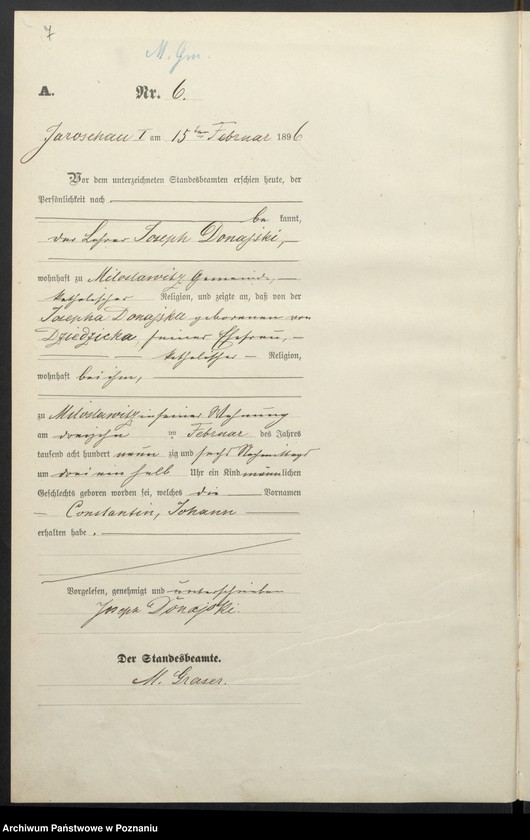 7
M. Gm.
A. Nr. 6.
Jaroschau I am 15ten Februar 1896
Vor dem unterzeichneten Standesbeamten erschien heute, der
Persönlichkeit nach
be kannt,
der Lehrer Joseph Donajski,
wohnhaft zu Miloslawitz Gemeinde,
katholischer Religion, und zeigte an, daß von der
Josepha Donajska geborenen von
Dziedzicka, seiner Ehefrau,
katholischer Religion,
wohnhaft bei ihm,
zu Miloslawitz in seiner Wohnung
am dreizehn ten Februar des Jahres
tausend acht hundert neun zig und sechs Nachmittags
um drei ein halb Uhr ein Kind männlichen
Geschlechts geboren worden sei, welches die Vornamen
Constantin, Johann
erhalten habe.
Vorgelesen, genehmigt und unterschrieben
Joseph Donajski.
Der Standesbeamte.
M. Graser.
Archiwum Państwowe w Poznaniu